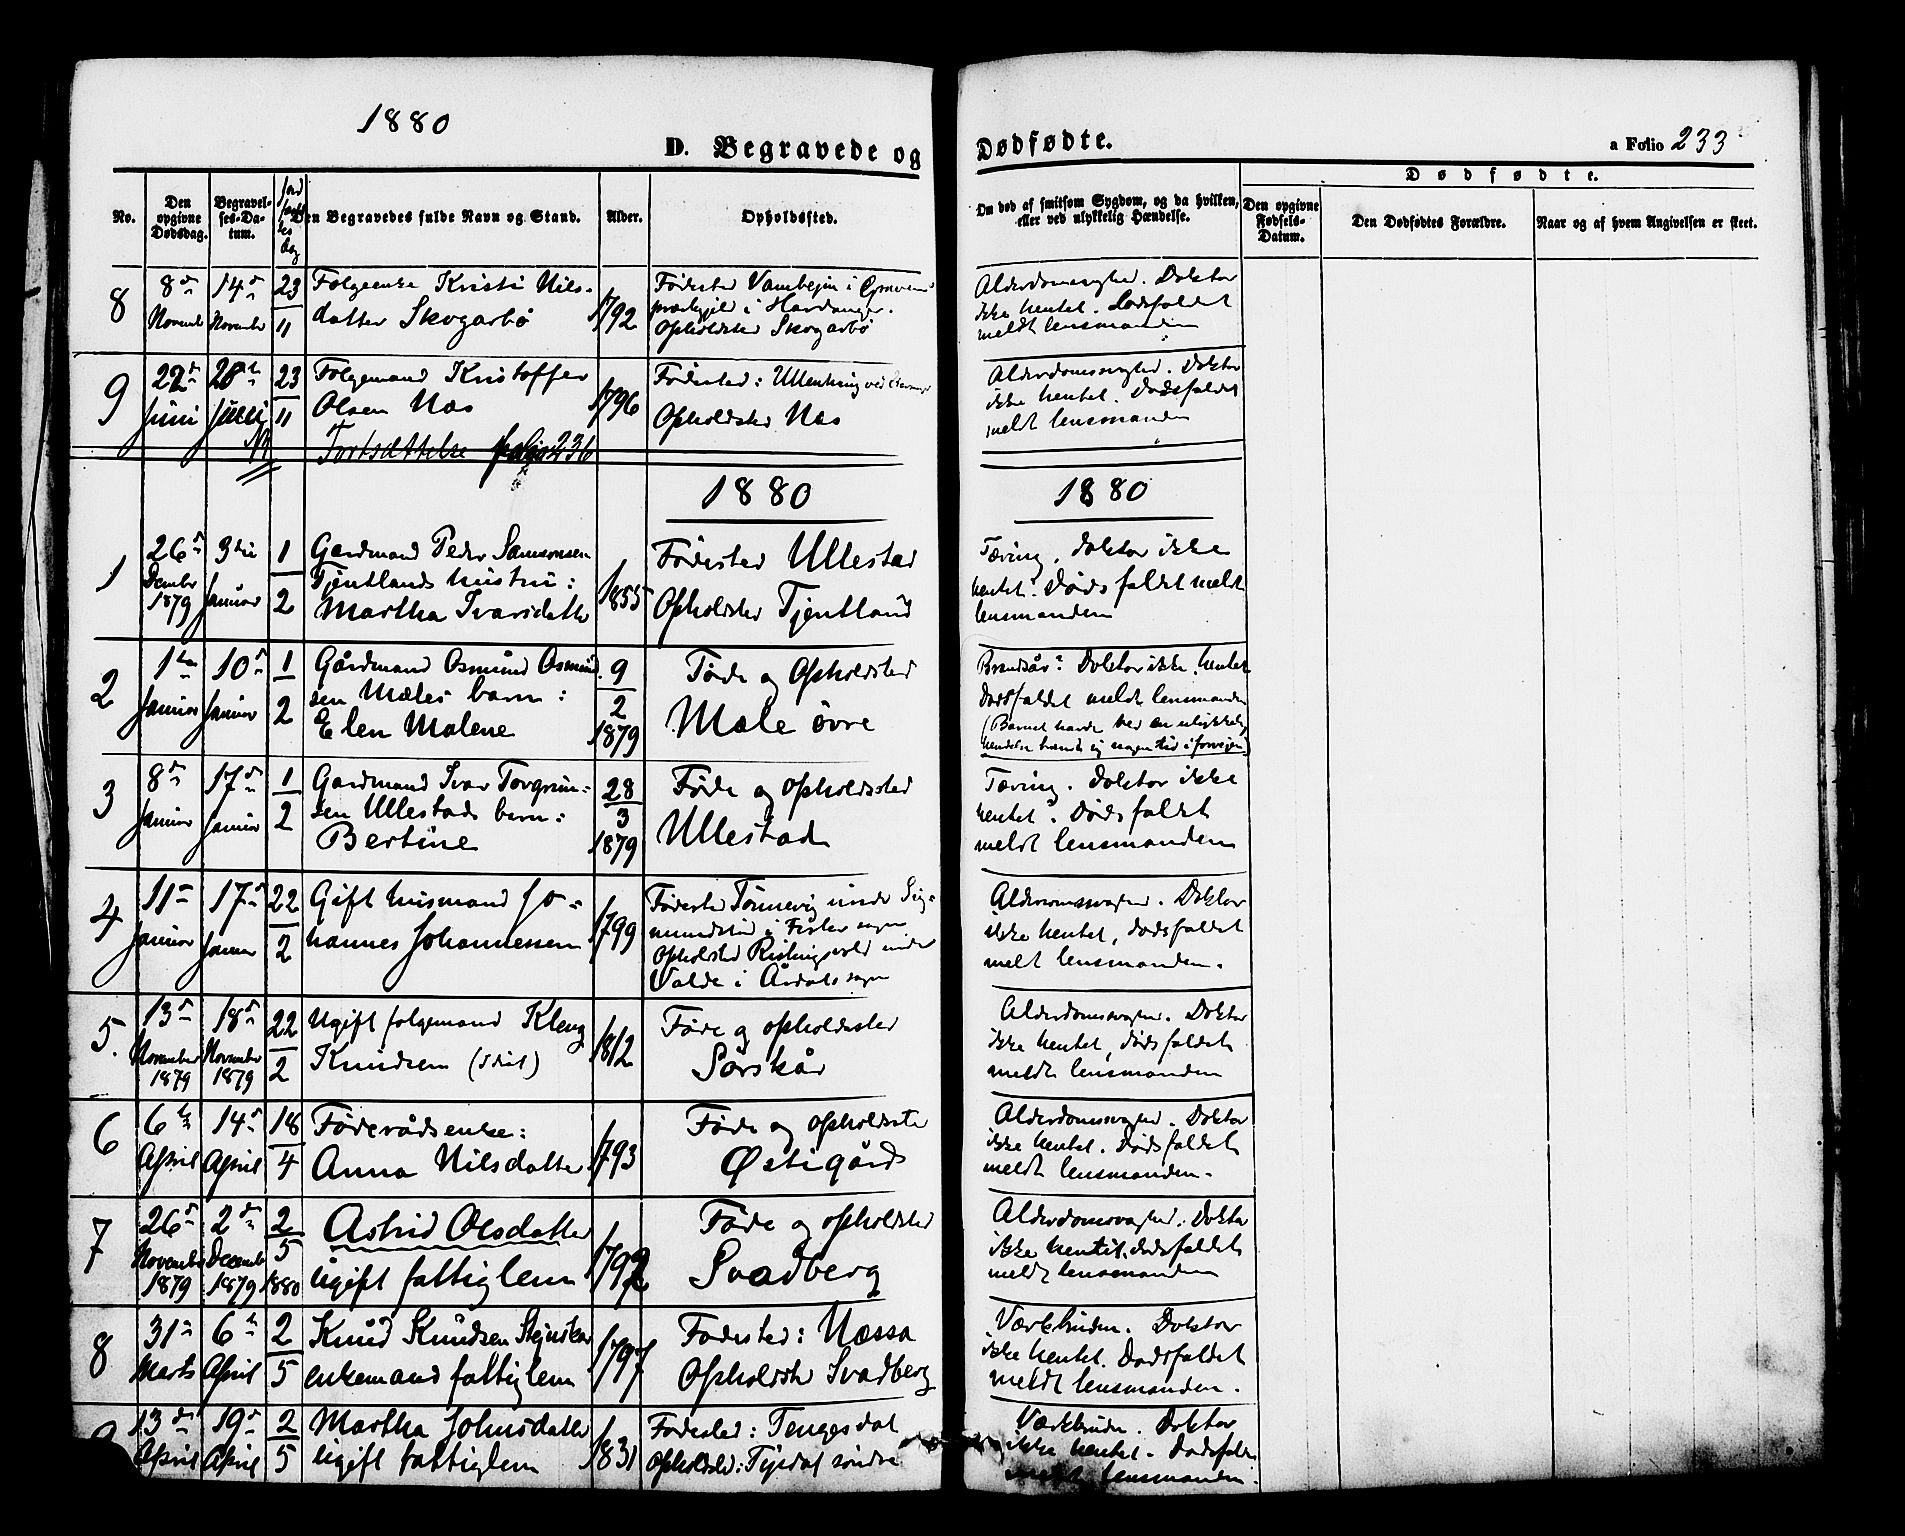 1880
D. Begravede og Dødfødte.
a Folio 233
No.
Den opgivne Dødsdag.
Begravelses-Datum.
Jord
dag
Den Begravedes fulde Navn og Stand.
Alder.
Opholdssted.
Om død af smitsom Sygdom, og da hvilken,
eller ved ulykkelig Hændelse.
Dødfødte.
Den opgivne Fødsels-Datum.
Den Dødfødtes Forældre.
Naar og af hvem Angivelsen er skeet.
8
8de Novembr
14de Novembr
23/11
Folgeenke Kristi Nils-
datter Skogarbø
1792
Fødested Vambejm i Graven
præstegjeld i Hardanger.
Opholdsted Skogarbø
Alderdomssvaghed. Doktor
ikke hentet. Dødsfaldet
meldt lensmanden
9
22de Juni
28de
23/11
Folgemand Kristoffer
Olsen Næs
1796
Fødested: Ullenhaug ved
Opholdsted Næs
Alderdomssvaghed. Doktor
ikke hentet. Dødsfaldet
meldt lensmanden
Fortsættelse folio 236
1880
1880
1
26de Decmbr 1879
3die Januar
1/2
Gardmand Peder Samsonsen
Tjentlands hustru:
Martha Ivarsdatter
1855
Fødested Ullestad
Opholdsted Tjentland
Tæring. Doktor ikke
hentet. Dødsfaldet meldt
lensmanden
2
1ste Januar
10de Januar
1/2
Gårdmand Osmund Osmund
sen Mæles barn:
Elen Malene
9/2 1879
Føde og Opholdsted
Mæle øvre
Brandsår? Doktor ikke hentet
Dødsfaldet meldt lensmanden
(Barnet havde ved en ulykkelig
hendelse brændt sig nogen tid i forvejen)
3
8de Januar
17de Januar
1/2
Gardmand Ivar Torgrim-
sen Ullestads barn:
Bertine
28/3 1879
Føde og opholdssted
Ullestad
Tæring. Doktor ikke
hentet. Dødsfaldet
meldt lensmanden
4
11te Januar
17de Januar
22/2
Gift husmand Jo-
hannes Johannessen
1799
Fødested Tønnevig under Sig-
mundstad i Fister sogn
Opholdsted Ristingsvold under
Valde i Årdals sogn
Alderdomssvaghed. Doktor
ikke hentet, dødsfaldet
meldt lensmanden.
5.
13de November 1879
18de November 1879
22/2
Ugift folgemand Kleng
Knudsen
1812
Føde og opholdssted
Sørskår
Alderdomssvaghed. Doktor
ikke hentet, dødsfaldet
meldt lensmanden
6
6te April
14de April
18/4
Føderådsenke:
Anna Nilsdatter
1793
Føde og opholdsste
Østigård
Alderdomssvaghed. Doktor
ikke hentet. Dødsfaldet
meldt lensmanden.
7
26de November 1879
2den December 1879
2/5 1880
Astrid Olsdatter
ugift fattiglem
1792
Føde og opholdsted
Svadberg
Alderdomssvaghed. Doktor
ikke hentet. dødsfaldet
meldt lensmanden
8
31te Marts
6te April
2/5
Knud Knudsen Stejnskar
enkemand fattiglem
1797
Fødested: Næssa
Opholdste Svadberg
Værkbruden. Doktor
ikke hentet. Dødsfaldet
meldt lensmanden.
13de April
19de April
2/5
Martha Johnsdatter
ugift fattiglem
1831
Fødested: Tengesdal
Opholdsted: Tysdal søndre
Værkbruden. Doktor
ikke hentet. Dødsfaldet
meldt lensmanden.